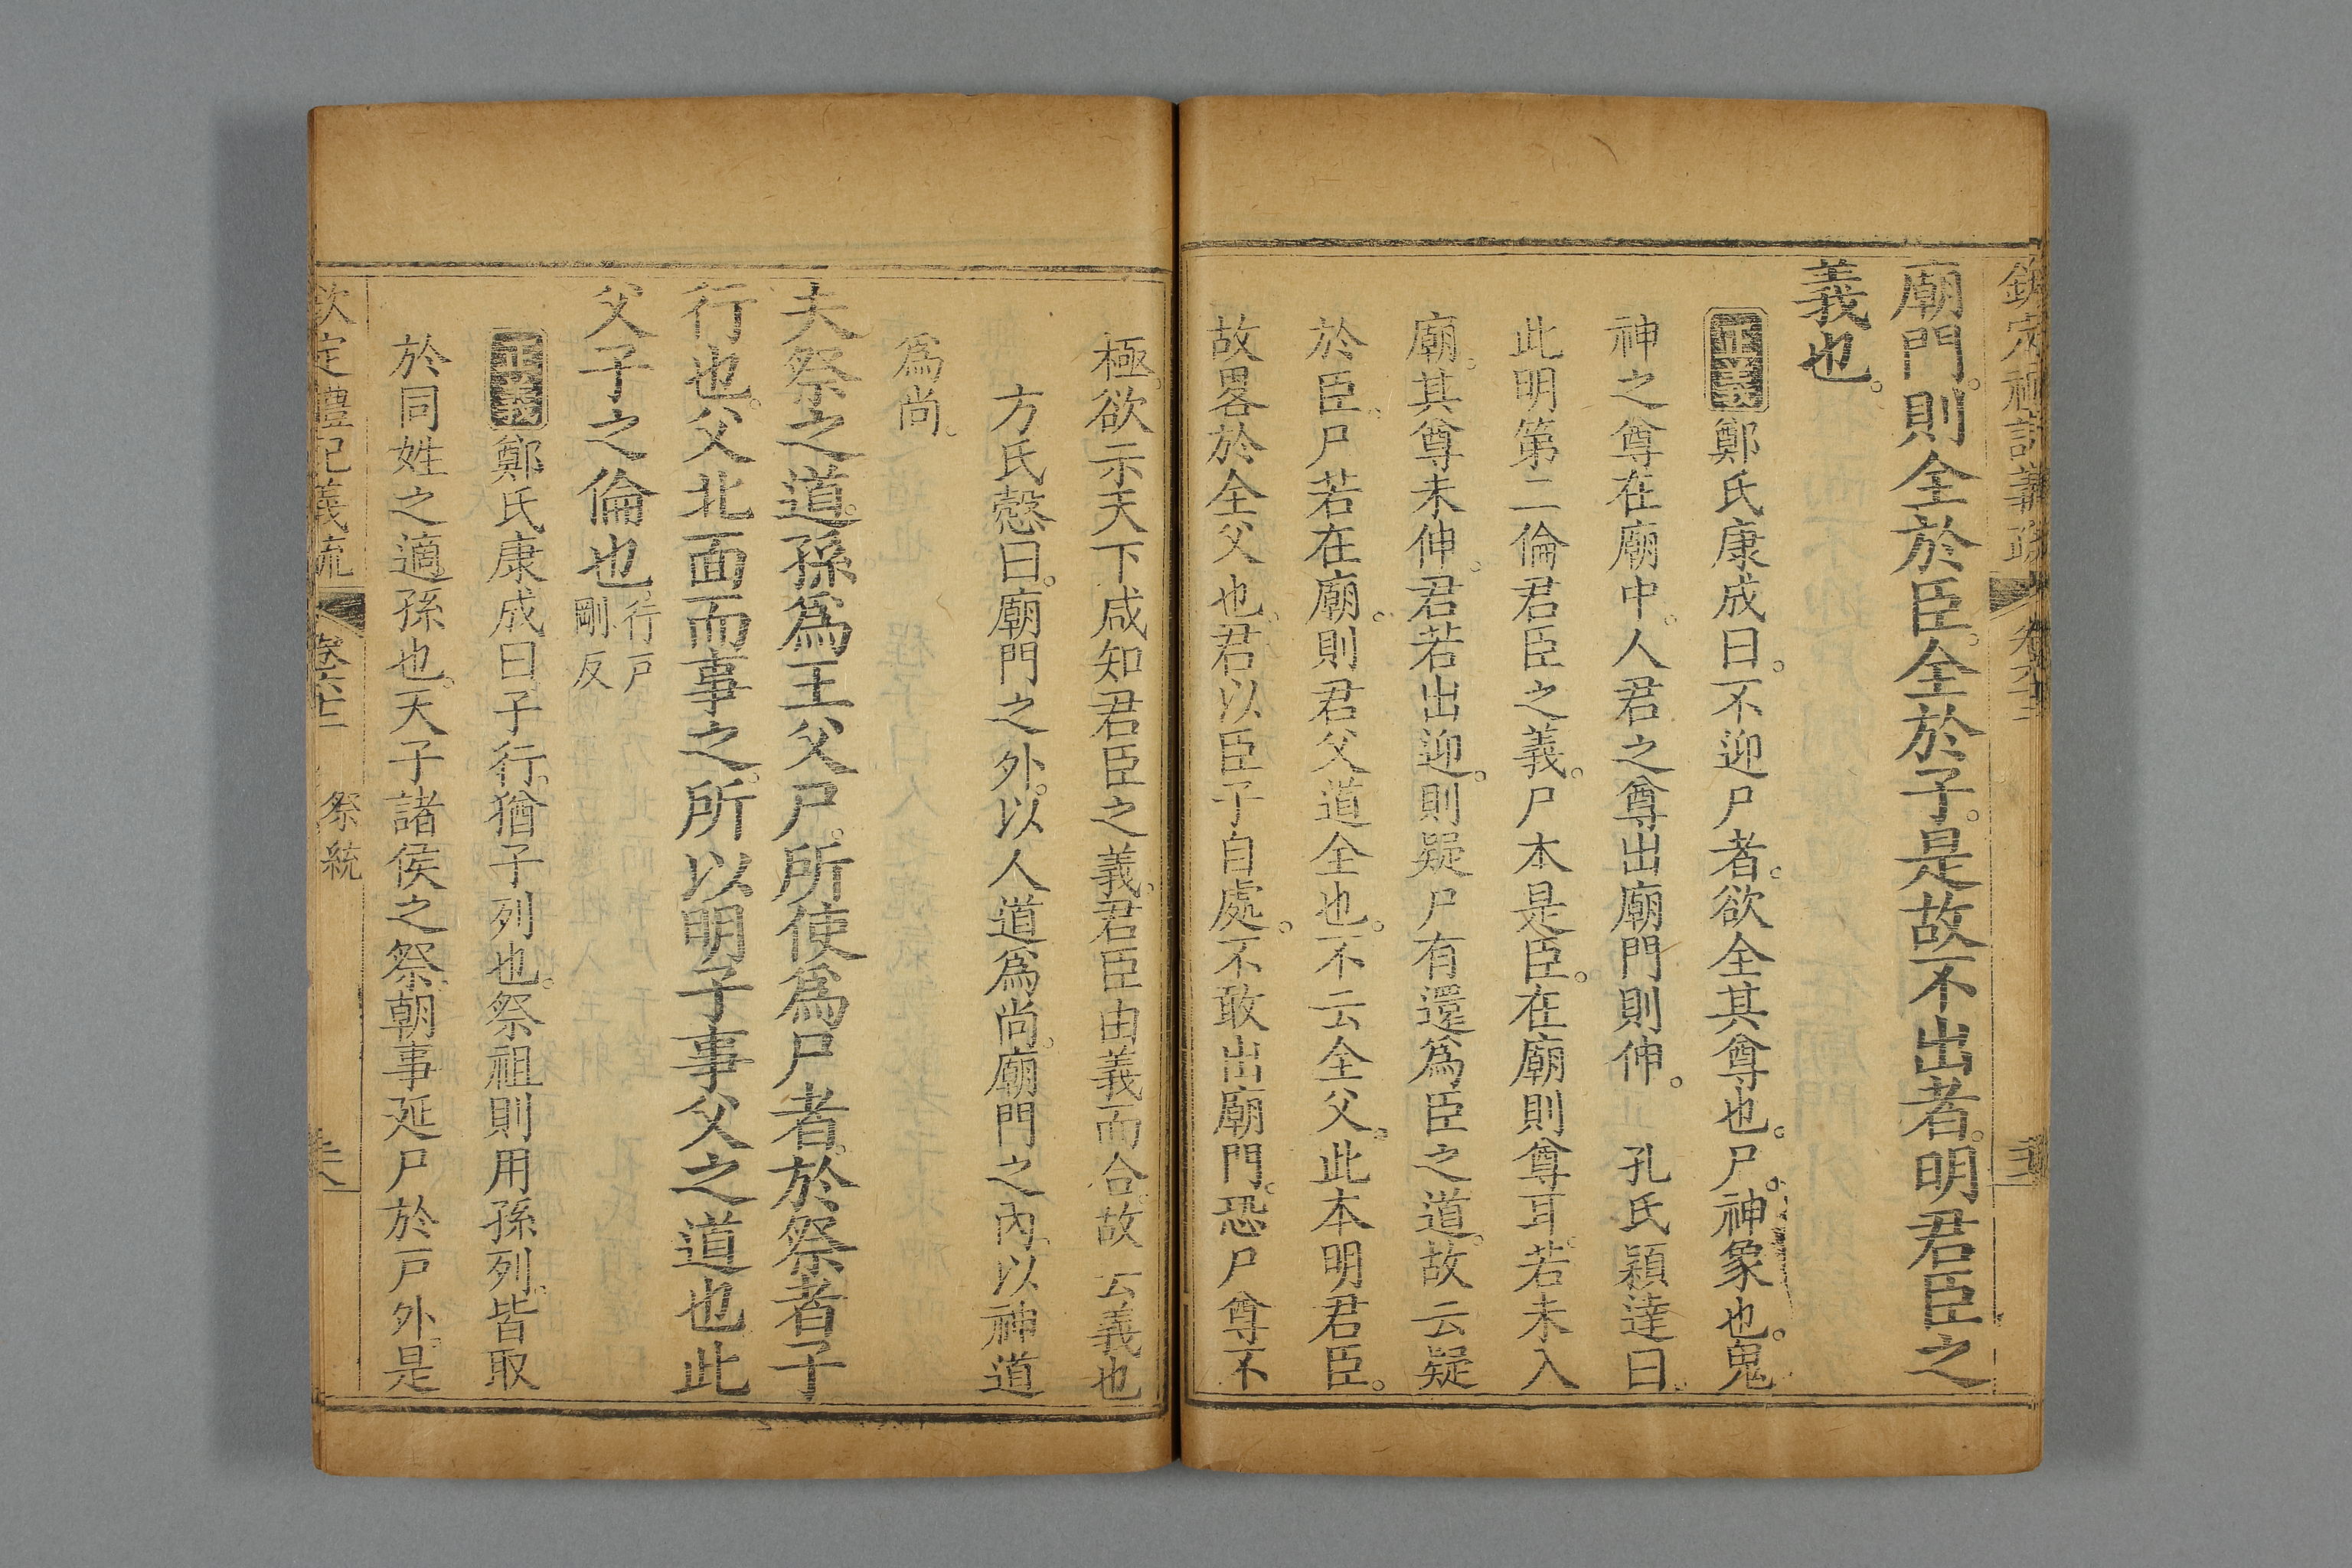 欽定禮記義疏 卷六十二
廟門則全於臣全於子是故不出者明君臣之
義也
正義鄭氏康成曰不迎尸者欲全其尊也尸神象也鬼
神之尊在廟中人君之尊出廟門則伸 孔氏穎達曰
此明第二倫君臣之義尸本是臣在廟則尊耳若未入
廟其尊未伸君若出迎則疑尸有還爲臣之道故云疑
於臣尸若在廟則君父道全也不云全父此本明君臣
故畧於全父也君以臣子自處不敢出廟門恐尸尊不
極欲示天下咸知君臣之義君臣由義而合故云義也
方氏慤曰廟門之外以人道爲尚廟門之內以神道
爲尚
夫祭之道孫爲王父尸所使爲尸者於祭者子
行也父北面而事之所以明子事父之道也此
父子之倫也行戶剛反
正義鄭氏康成曰子行猶子列也祭祖則用孫列皆取
於同姓之適孫也天子諸侯之祭朝事延尸於戶外是
欽定禮記義疏 卷六十二 祭統